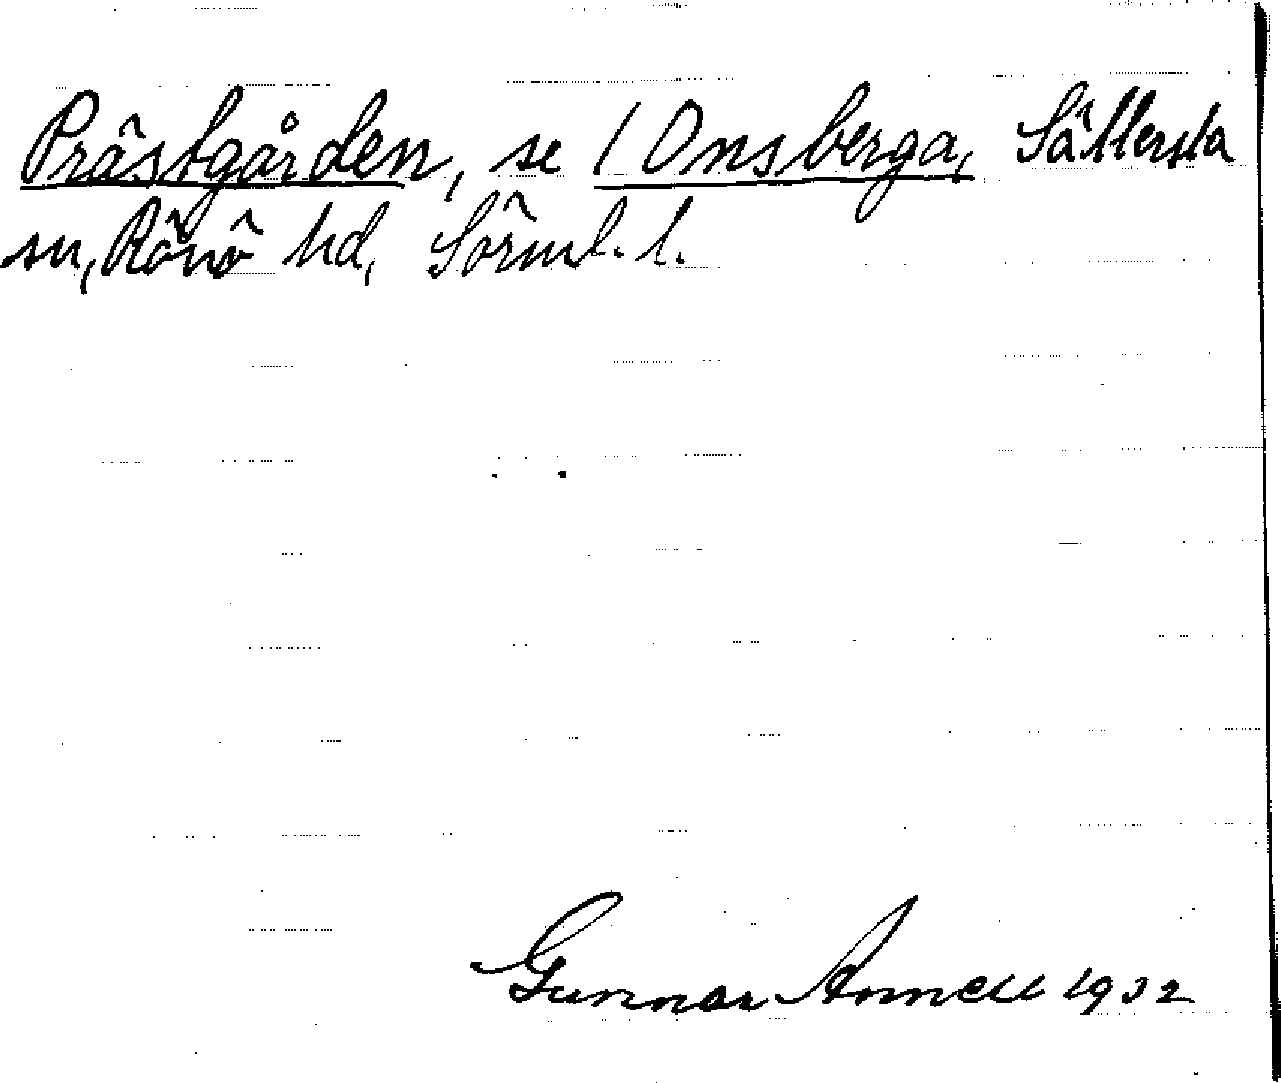 Prästgården, se 1 Onsberga, Sättersta
sn, Rönö hd, Sörml. l.
Gunnar Annell 1932